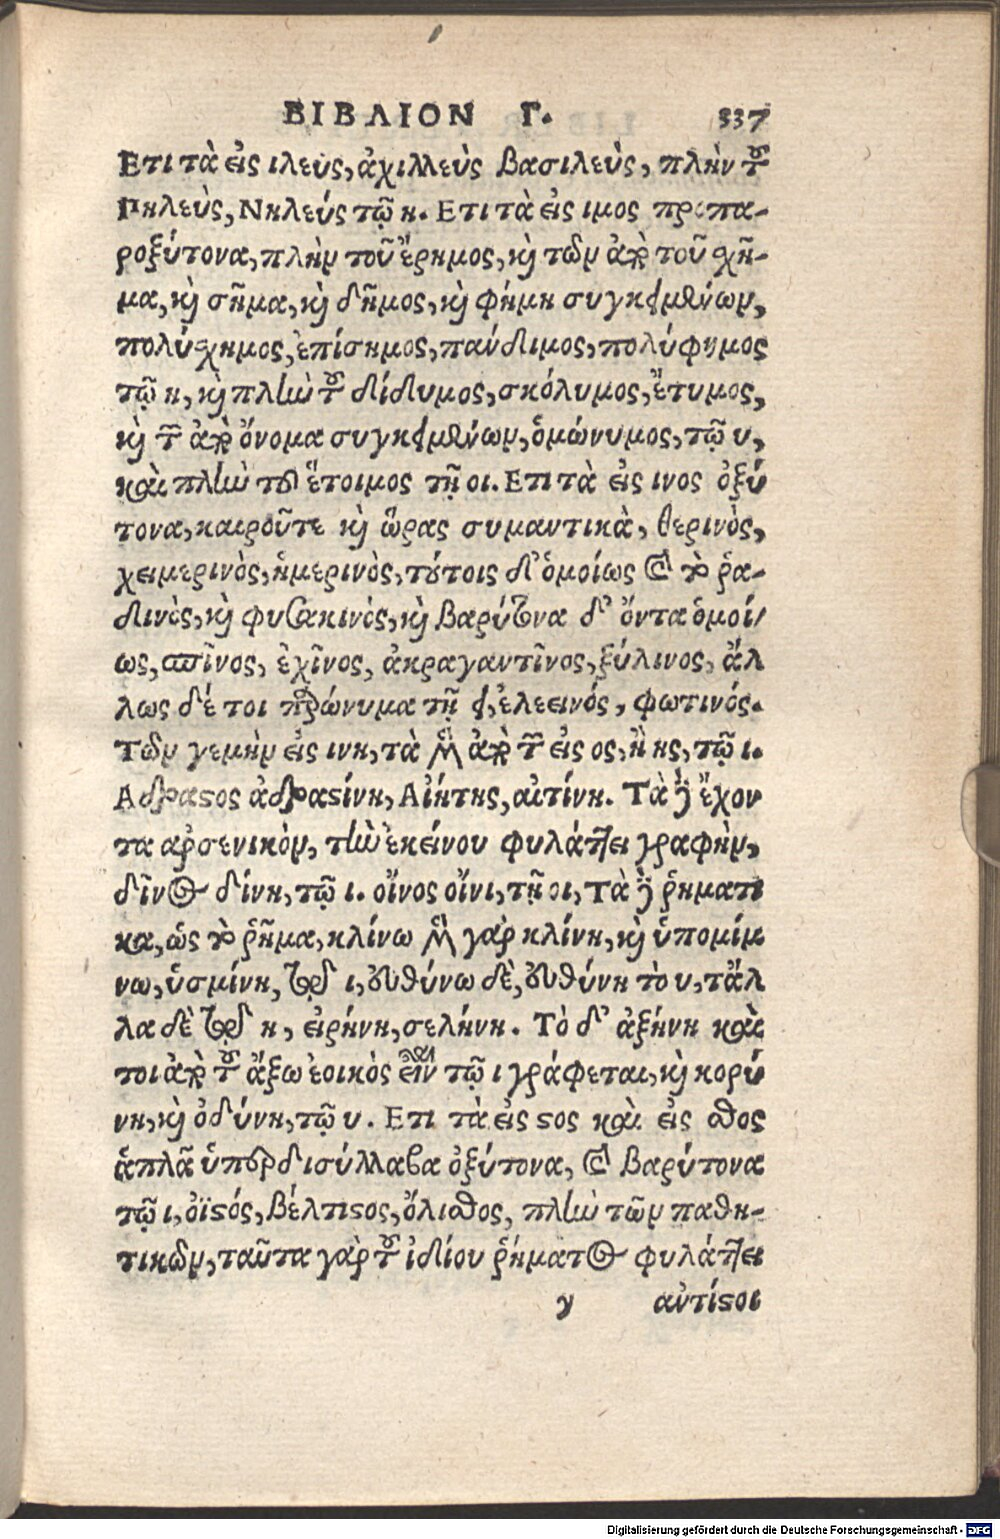 ΒΙΒΛΙΟΝ Γ. 337
Ετι τὰ εἰς ιλευς, ἀχιλλεὺς βασιλεὺς, πλὴν τοῦ
Πηλεὺς, Νηλεύς τῷ η. Ετι τὰ εἰς ιμος προπα-
ροξύτονα, πλὴν τοῦ ἔρημος, καὶ τῶν ἀπὸ τοῦ χῆ-
μα, καὶ σῆμα, καὶ δῆμος, καὶ φήμη συγκειμένων,
πολύχημος, ἐπίσημος, πανδιμος, πολύφημος
τῷ η, καὶ πλὴν τοῦ δίδυμος, σκόλυμος, ἔτυμος,
καὶ τῶν ἀπὸ ὄνομα συγκειμένων, ὁμώνυμος, τῷ υ,
καὶ πλὴν τοῦ ἕτοιμος τῇ οι. Ετι τὰ εἰς ινος ὀξύ
τονα, καιροῦτε καὶ ὥρας συμαντικὰ, θερινὸς,
χειμερινὸς, ἡμερινὸς, τούτοις δ' ὁμοίως καὶ τὸ ῥα-
δινὸς, καὶ φυζακινὸς, καὶ βαρύτονα δ' ὄντα ὁμοί/
ως, σπῖνος, ἐχῖνος, ἀκραγαντῖνος, ξύλινος, ἄλ
λως δέ τοι παρώνυμα τῇ ει, ἐλεεινός, φωτινός.
Τῶν γεμὴν εἰς ινη, τὰ μὲν ἀπὸ τῶν εἰς ος, ἢ ης, τῷ ι.
Αδραστος ἀδραστίνη, Αἰήτης, αιτίνη. Τὰ δὲ ἔχον
τα αρσενικὸν, τὴν ἐκείνου φυλάττει γραφὴν,
δῖνος δίνη, τῷ ι. οἶνος οἴνι, τῇ οι, τὰ δὲ ῥηματι
κα, ὡς τὸ ῥῆμα, κλίνω μὲν γὰρ κλίνη, καὶ ὑπομίμ
νω, ὑσμίνη, διὰ τοῦ ι, εὐθύνω δὲ, εὐθύνη τὸ υ, τἄλ
λα δὲ διὰ τοῦ η, εἰρήνη, σελήνη. Τὸ δ' ἀξήνη καὶ
τοι ἀπὸ τοῦ ἄξω ἐοικὸς εἶναι τῷ ι γράφεται, καὶ κορύ
νη, καὶ ὀδύνη, τῷ υ. Ετι τὰ εἰς στος καὶ εἰς σθος
ἁπλᾶ ὑπὲρ δισύλλαβα ὀξύτονα, καὶ βαρύτονα
τῷ ι, ὀϊστός, βέλτιστος, ὄλισθος, πλὴν τῶν παθη-
τικῶν, ταῦτα γὰρ τοῦ ἰδίου ῥήματος φυλάττει
y αὐτίστοι
Digitalisierung gefördert durch die Deutsche Forschungsgemeinschaft - DFG